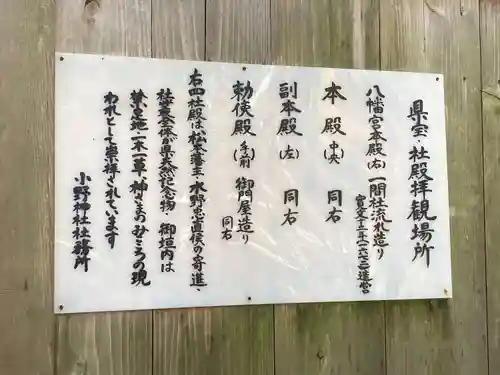 県宝・社殿拝観場所
八幡宮本殿(右) 一間社流れ造り
寛文十二年(一六七二)造営
本殿(中央) 同右
副本殿(左) 同右
勅使殿(手前) 御門屋造り
同右
右四社殿は、松本藩主・水野忠直侯の寄進、
社叢全体が県天然記念物・御垣内は
禁足地・一木一草、神さまのみこころの現
われとして崇拝されています
小野神社社務所